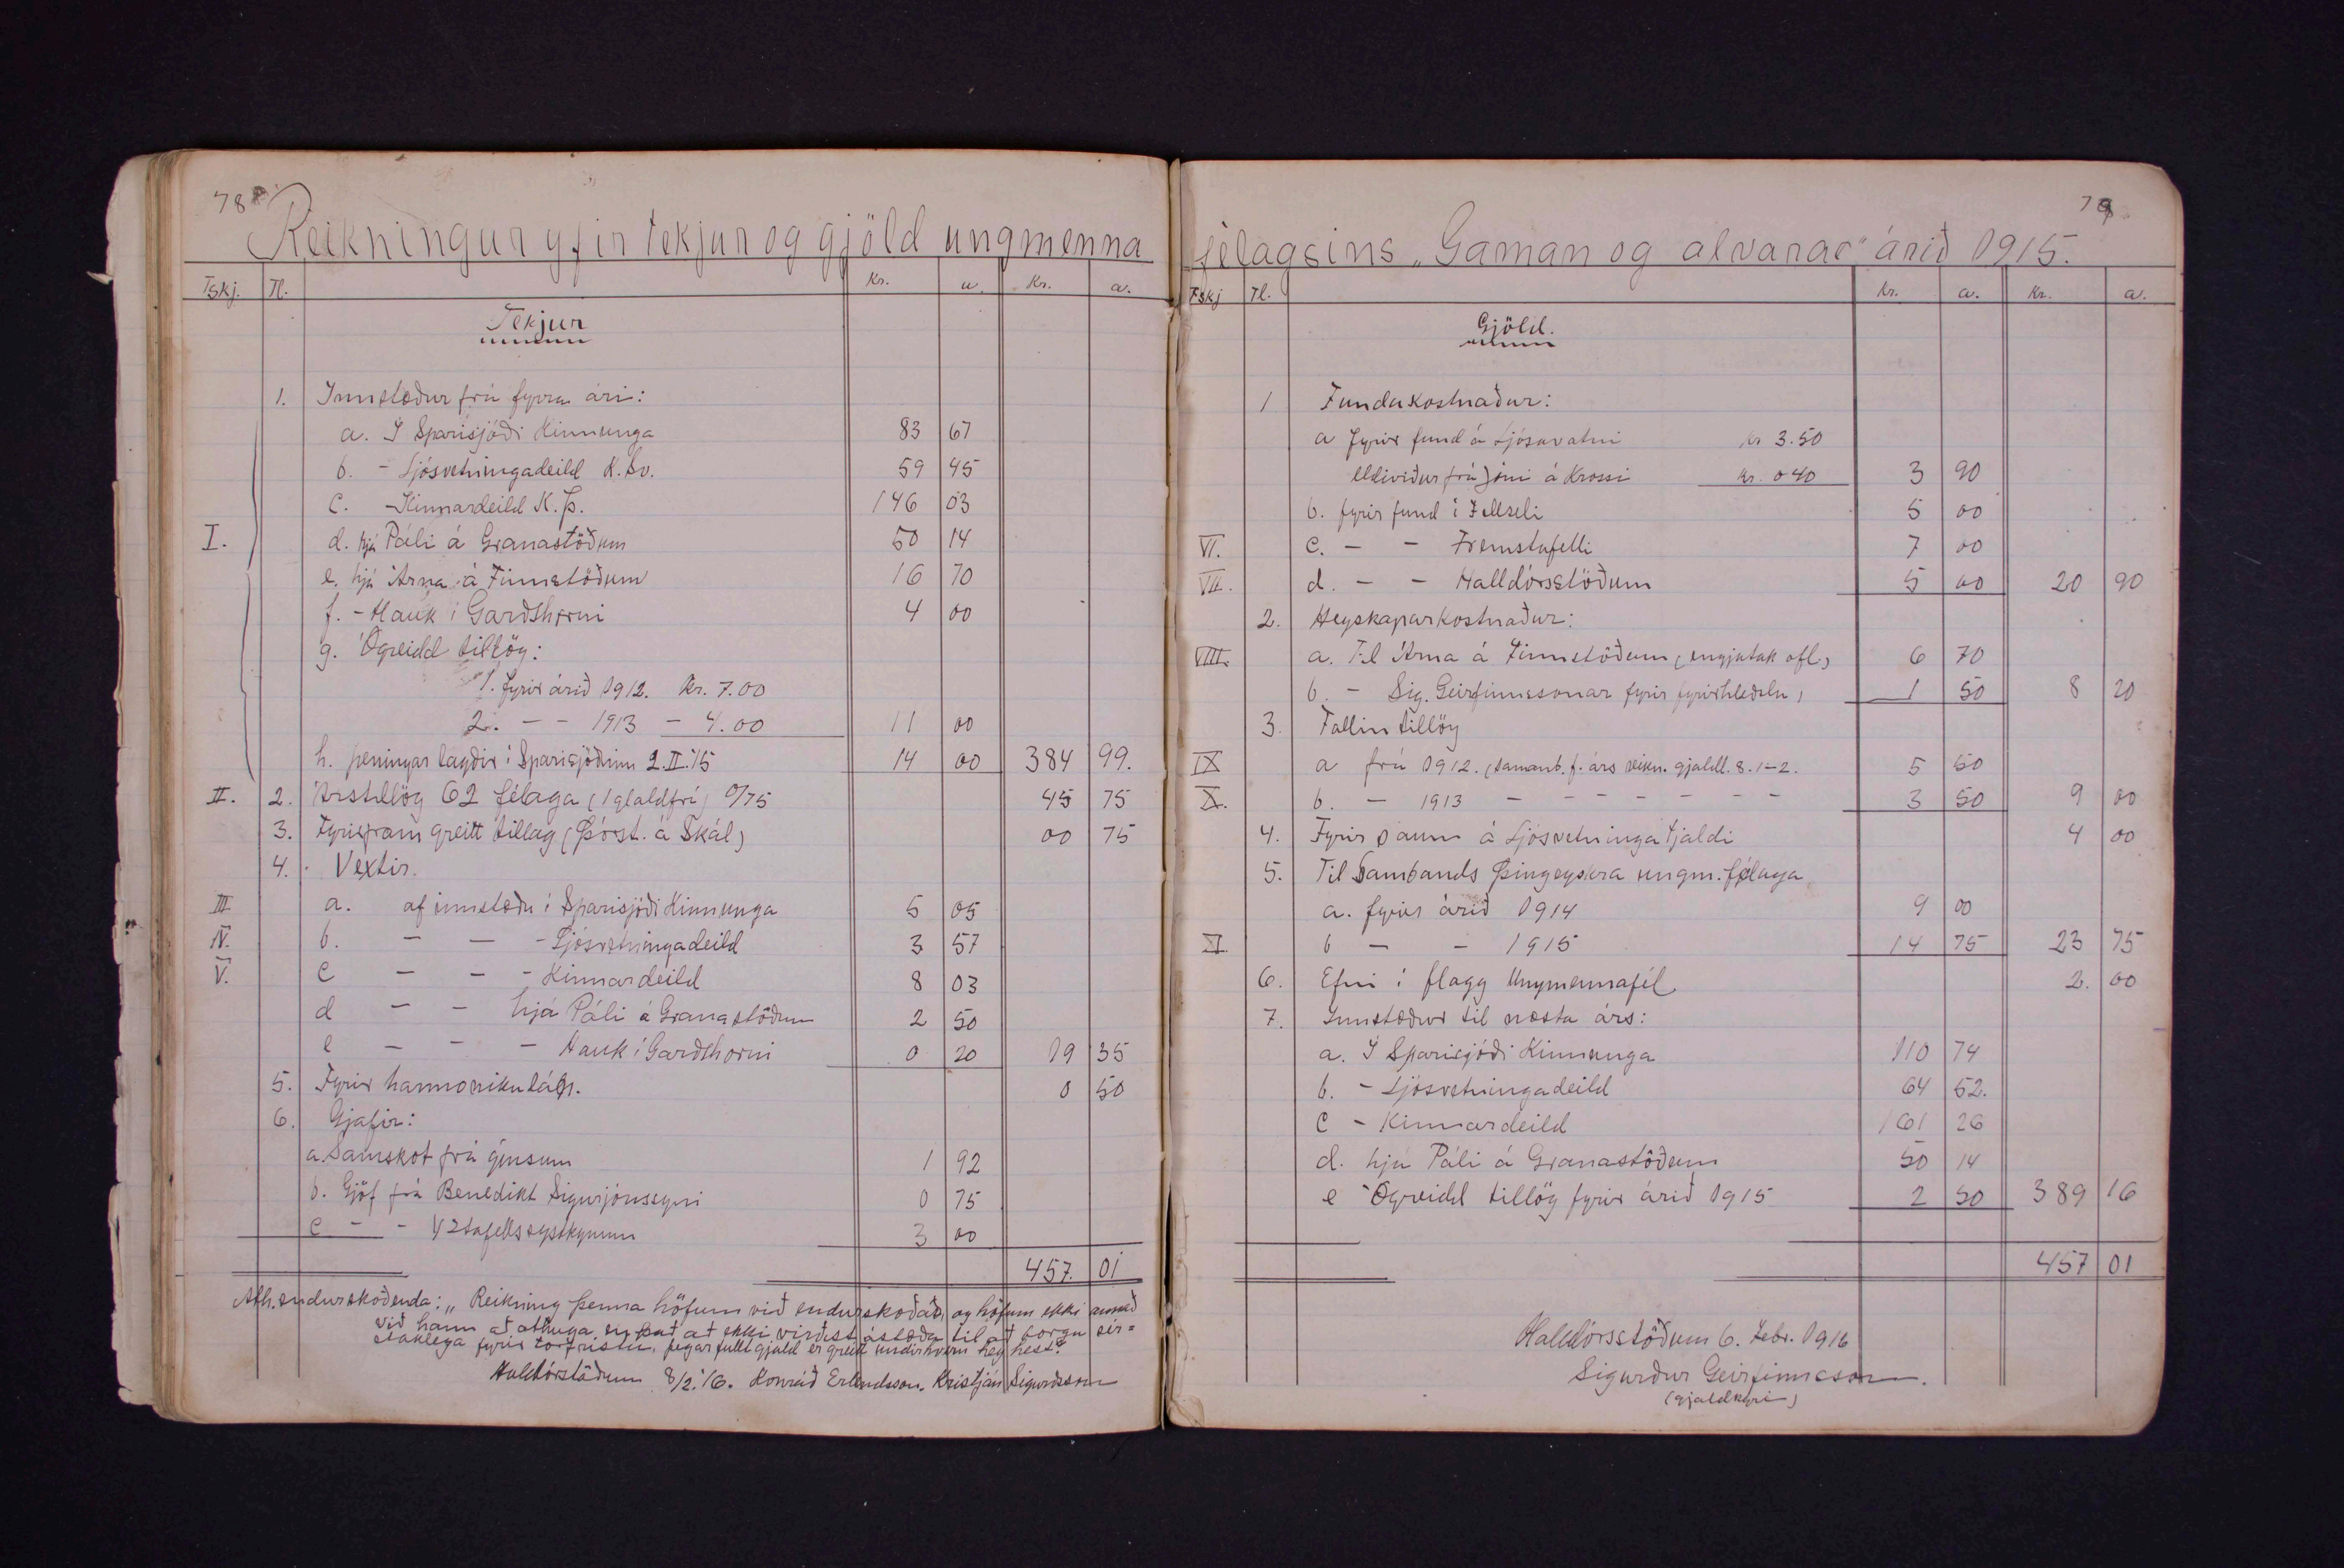 78
Reikningur yfir tekjur og gjöld ungmenna
Fskj. Tl. Kr. a. Kr. a.
Tekjur
1. Innstæður frá fyrra ári:
a. Í Sparisjóði Kinnunga 83 67
b. - Ljósvetningadeild K. Sv. 59 45
c. - Kinnardeild K. Þ. 146 03
I. d. hjá Páli á Granastöðum 50 14
e. hjá Árna á Finnstöðum 16 70
f. - Hauk í Garðshorni 4 00
g. Ógreidd tillög:
1. fyrir árið 1912. Kr. 7.00
2. - - 1913 - 4.00 11 00
h. peningar lagðir í Sparisjóðinn 2.II.'15 14 00 384 99.
II. 2. Árstillög 62 félaga (1 glaldfrí) 0/75 45 75
3. Fyrirfram greitt tillag (Þórst. á Skál) 00 75
4. Vextir.
III a. af innstæðu í Sparisjóði Kinnunga 5 05
IV. b. - - - Ljósvetningadeild 3 57
V. c - - - Kinnardeild 8 03
d - - hjá Páli á Granastöðum 2 50
e - - - Hauk í Garðshorni 0 20 19 35
5. Fyrir harmonikulán. 0 50
6. Gjafir:
a. Samskot frá ýmsum 1 92
b. Gjöf frá Benedikt Sigurjónssyni 0 75
c - - systkynum 3 00
457. 01
Ath. endurskoðenda: „Reikning þenna höfum við endurskoðað, og höfum ekki annað
við hann að athuga, en það að ekki virðist ástæða til að borga sér=
staklega fyrir torfristu, þegar fullt gjald er greitt undir hvern heyhest."
Halldórstöðum 8/2.'16. Konráð Erlendsson. Kristján Sigurðsson
79
félagsins „Gaman og alvara" árið 1915.
Fskj Tl. Kr. a. Kr. a.
Gjöld.
1 Fundakostnaður:
a fyrir fund á Ljósavatni kr 3.50
eldiviður frá Jóni á Krossi kr. 0 40 3 90
b. fyrir fund í Fellseli 5 00
VI. c. - - Fremstafelli 7 00
VII. d. - - Halldórsstöðum 5 00 20 90
2. Heyskaparkostnaður:
VIII. a. Til Árna á Finnstöðum (engjatak ofl.) 6 70
b. - Sig. Geirfinnssonar fyrir fyrirhleðslu, 1 50 8 20
3. Fallin tillög
IX a frá 1912. (samanb. f. árs reikn. gjaldl. 8. 1-2. 5 50
X. b. - 1913 - - - - - - - 3 50 9 00
4. Fyrir saum á Ljósvetningatjaldi 4 00
5. Til Sambands Þingeyskra ungm. félaga
a. fyrir árið 1914 9 00
XI. b - - 1915 14 75 23 75
6. Efni í flagg Ungmennafél 2. 00
7. Innstæður til næsta árs:
a. Í Sparisjóði Kinnunga 110 74
b. - Ljósvetningadeild 64 52.
c - Kinnardeild 161 26
d. hjá Páli á Granastöðum 50 14
e Ógreidd tillög fyrir árið 1915 2 50 389 16
457 01
Halldórsstöðum 6. Febr. 1916
Sigurður Geirfinnsson.
(gjaldkeri)